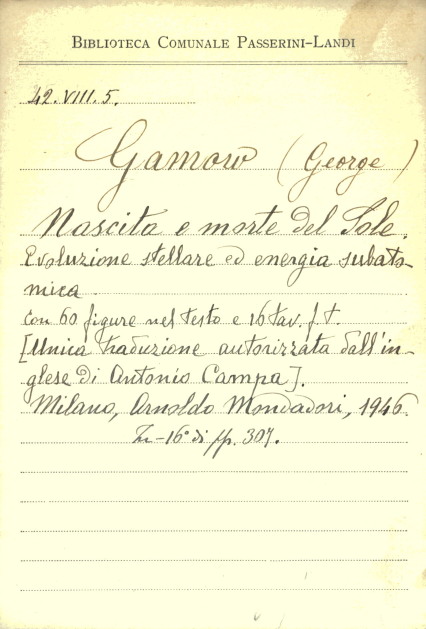 BIBLIOTECA COMUNALE PASSERINI-LANDI
42.VIII.5.
Gamow (George)
Nascita e morte del Sole.
Evoluzione stellare ed energia subato-
mica
con 60 figure nel testo e 16 tav. f. t.
[Unica traduzione autorizzata dall'in-
glese di Antonio Campa].
Milano, Arnoldo Mondadori, 1946.
In-16° di pp. 307.